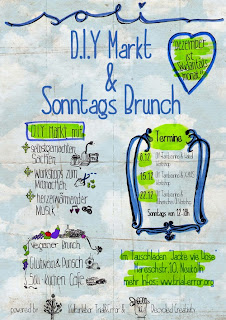 soli
D.I.Y Markt
&
Sonntags Brunch
DEZEMBER
ist
Solidaritäts
monat!
D.I.Y Markt mit:
selbstgemachten
Sachen
Workshops zum
Mitmachen
herzerwärmender
MUSIK
Veganer Brunch
Glühwein & Punsch
Soli-kuchen Café
Termine
8.12
15.12
22.12
Sonntags von 12-18h
Im Tauschladen Jacke wie Hose
Mareschstr. 10, Neukölln
mehr Infos: www.trial-error.org
powered by
Kulturlabor Trial&Error &
Recycled Creativity